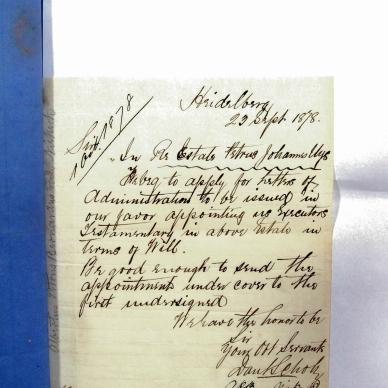 Heidelberg
23 Sept 1878.
Sir
1878
In Re Estate Petrus Johannes Uys
We beg to apply for Letters of
Administration to be issued in
our favor appointing us Executors
Testamentary in above Estate in
terms of Will.
Be good enough to send the
appointment under cover to the
first undersigned
We have the honor to be
Sir
Your Obt Servants